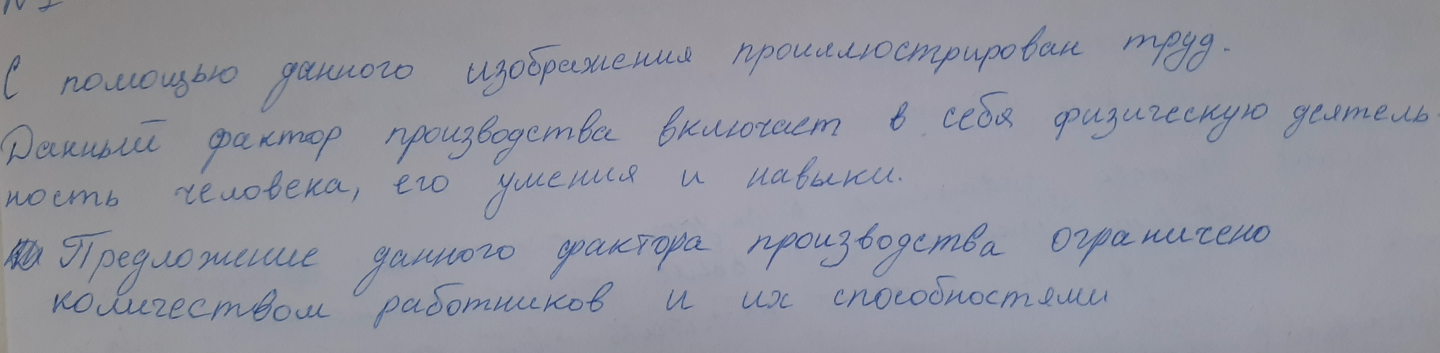 С помощью данного изображения проиллюстрирован труд.
Данный фактор производства включает в себя физическую деятель-
ность человека, его умения и навыки.
Предложение данного фактора производства ограничено
количеством работников и их способностями